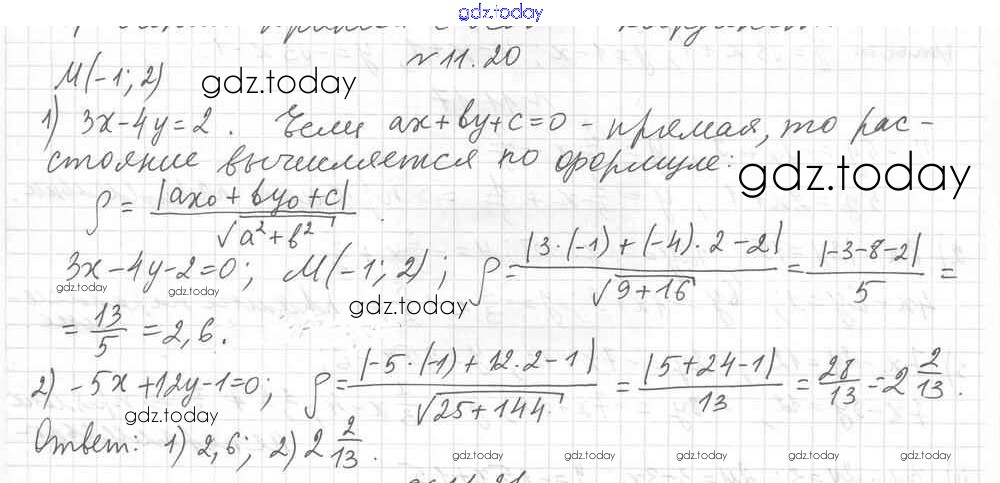 gdz.today
№11.20
M(-1; 2) gdz.today
1) 3x-4y=2. Если ax+by+c=0 - прямая, то рас-
стояние вычисляется по формуле: gdz.today
ρ = |ax₀ + by₀ + c| / √(a²+b²).
3x-4y-2=0; M(-1; 2); ρ = |3·(-1)+(-4)·2-2| / √(9+16) = |-3-8-2| / 5 =
gdz.today gdz.today gdz.today
= 13/5 = 2,6.
2) -5x+12y-1=0; ρ = |-5·(-1)+12·2-1| / √(25+144) = |5+24-1| / 13 = 28/13 = 2 2/13.
gdz.today
Ответ: 1) 2,6; 2) 2 2/13.
gdz.today gdz.today gdz.today gdz.today gdz.today